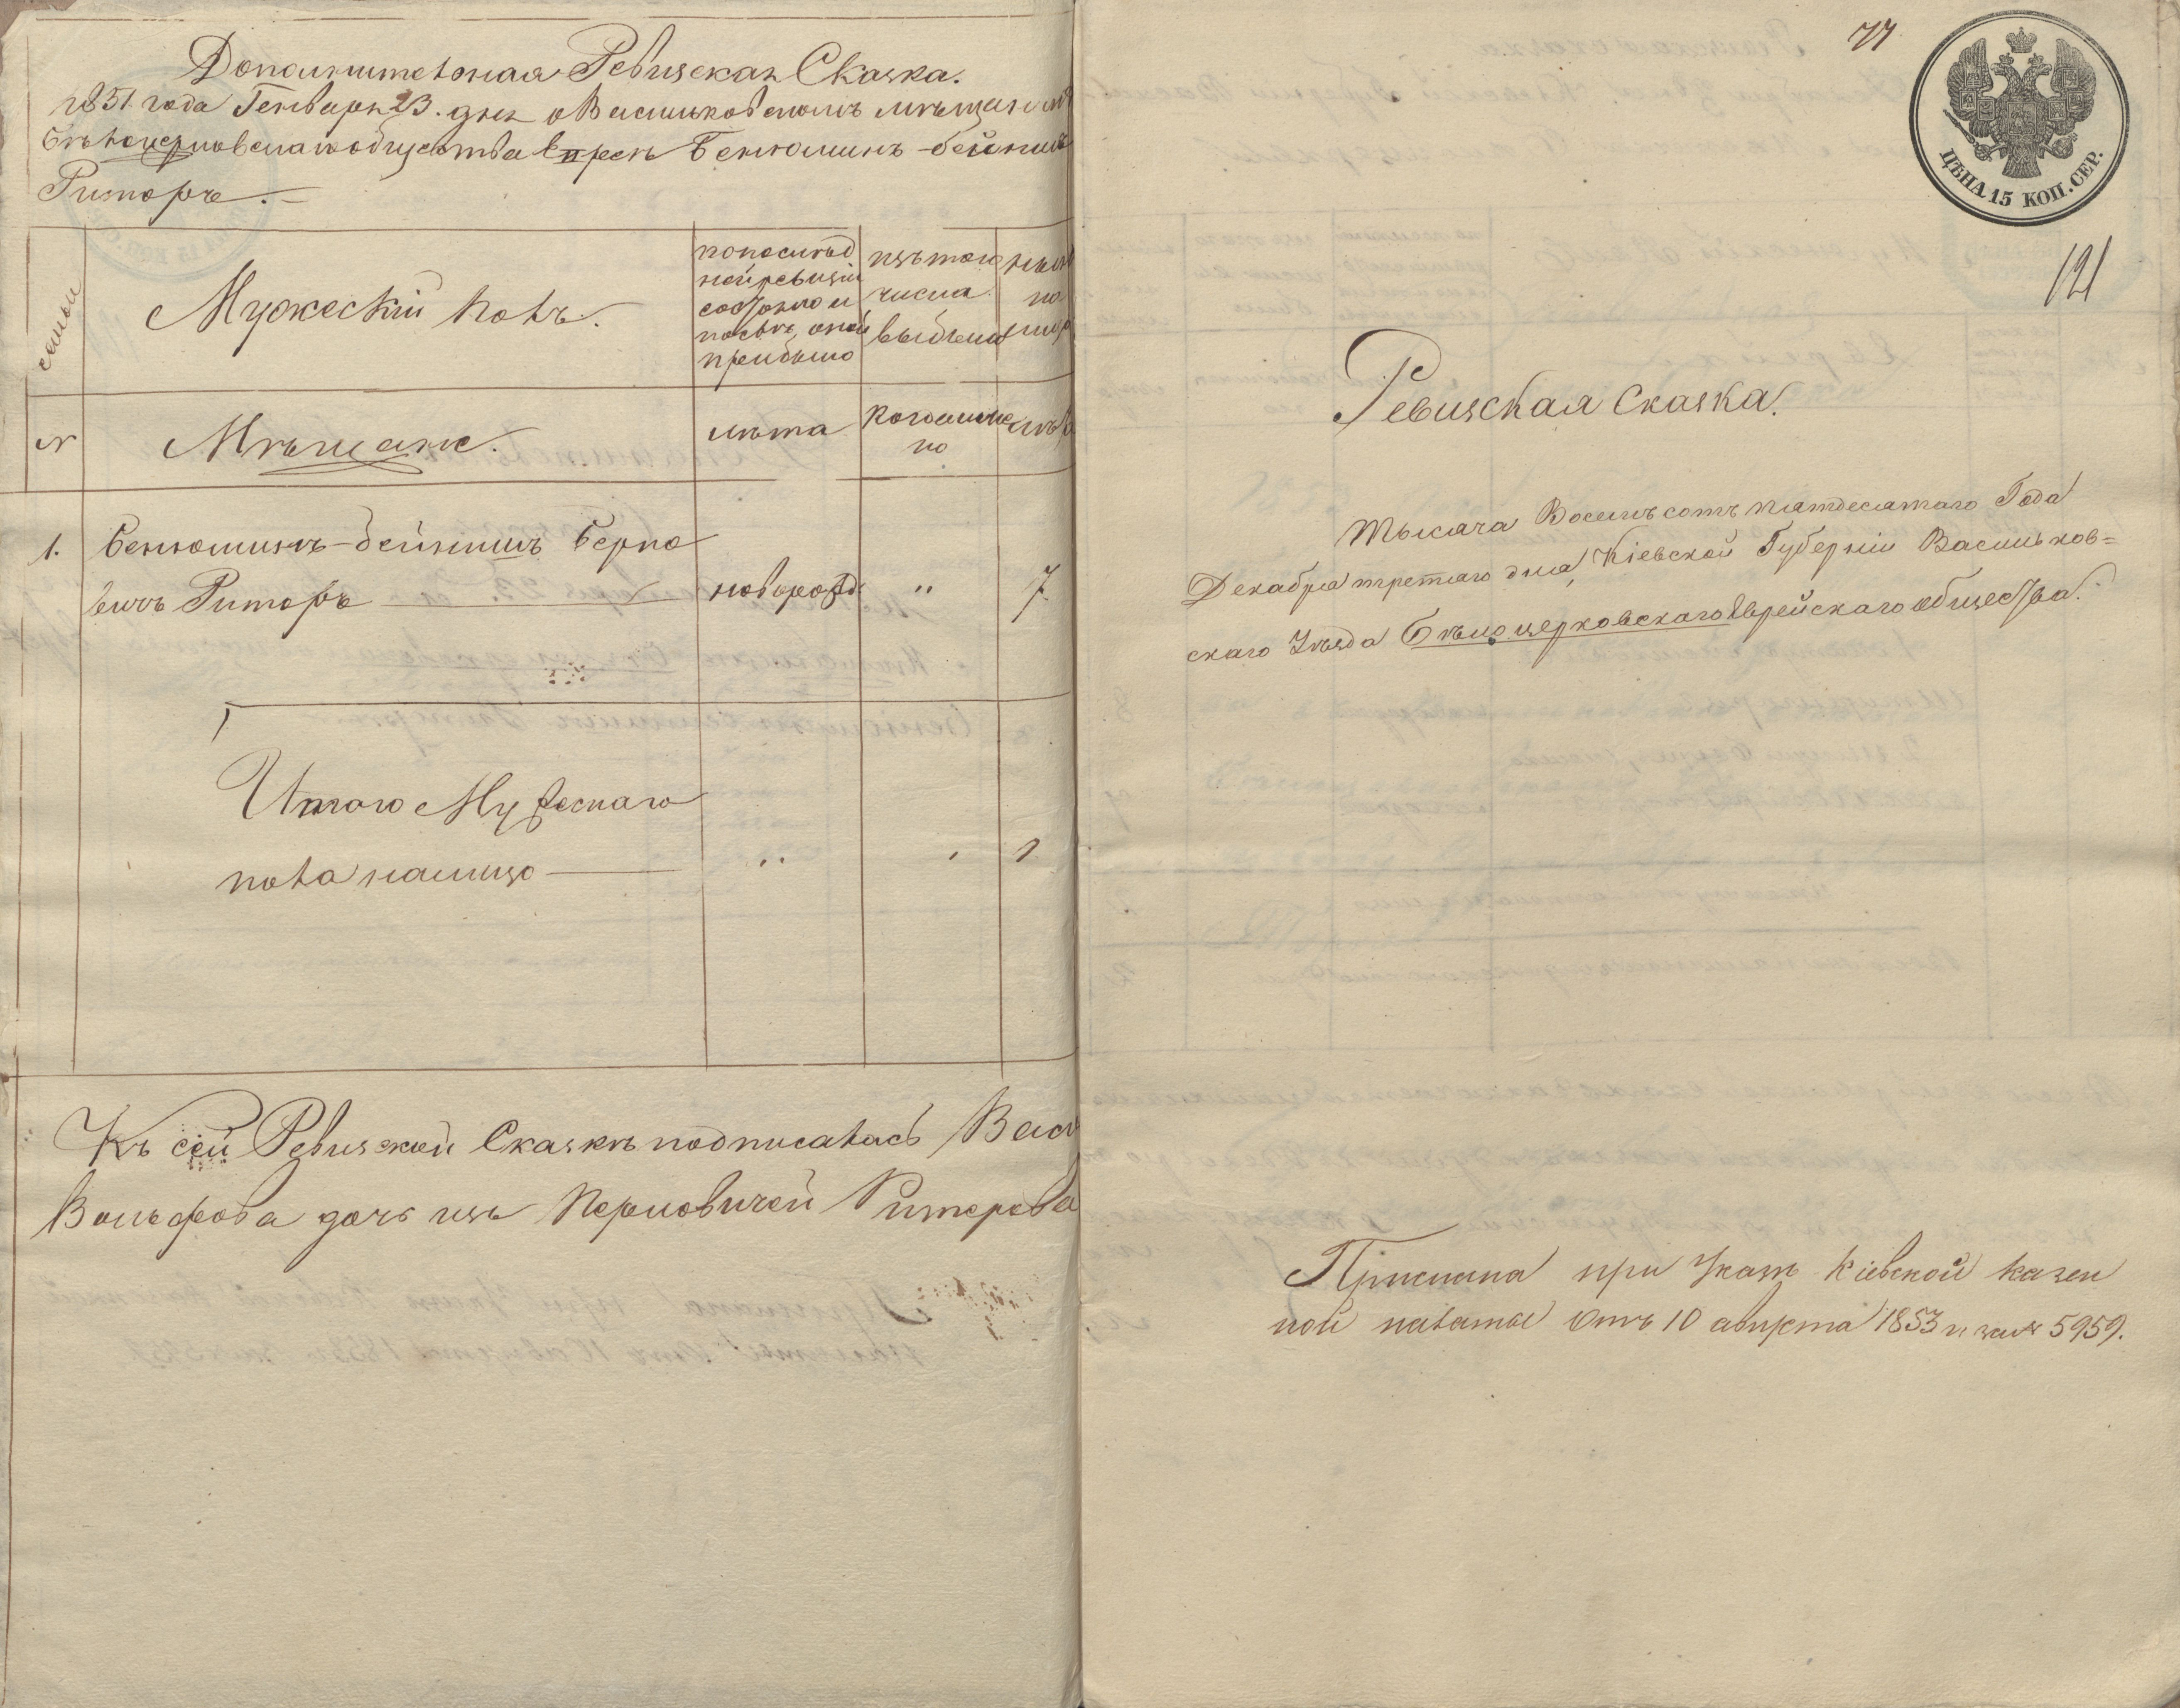 Дополнительная Ревизская Сказка.
1851 года Генваря 23. дня о Васильковскомъ мѣщанинѣ
Бѣлоцерковскаго общества Евреѣ Бенюминѣ-бейнишѣ
Риторѣ.
семьи
Мужескій полъ.
по послѣд
ней ревизіи
состояло и
послѣ оной
прибыло
изъ того
числа
выбыло
нынѣ
на
лицо
№
Мѣщане.
лѣта
когда имен
но
лѣта
1. Бенюминъ-бейнишъ Берко
вичъ Риторъ новорожд " 7
Итого Мужескаго
пола налицо 1
Къ сей Ревизской Сказкѣ подписалась
Вольфова дочь изъ Ритерова
77
ЦѢНА 15 КОП. СЕР.
121
Ревизская Сказка.
Тысяча Восемьсотъ пятдесятаго Года
Декабря третяго дня, Кіевской Губерніи Васильков=
скаго Уѣзда Бѣлоцерковскаго Еврейскаго общества.
Прислана при Указѣ Кіевской казен
ной палаты отъ 10 августа 1853 г за № 5959.